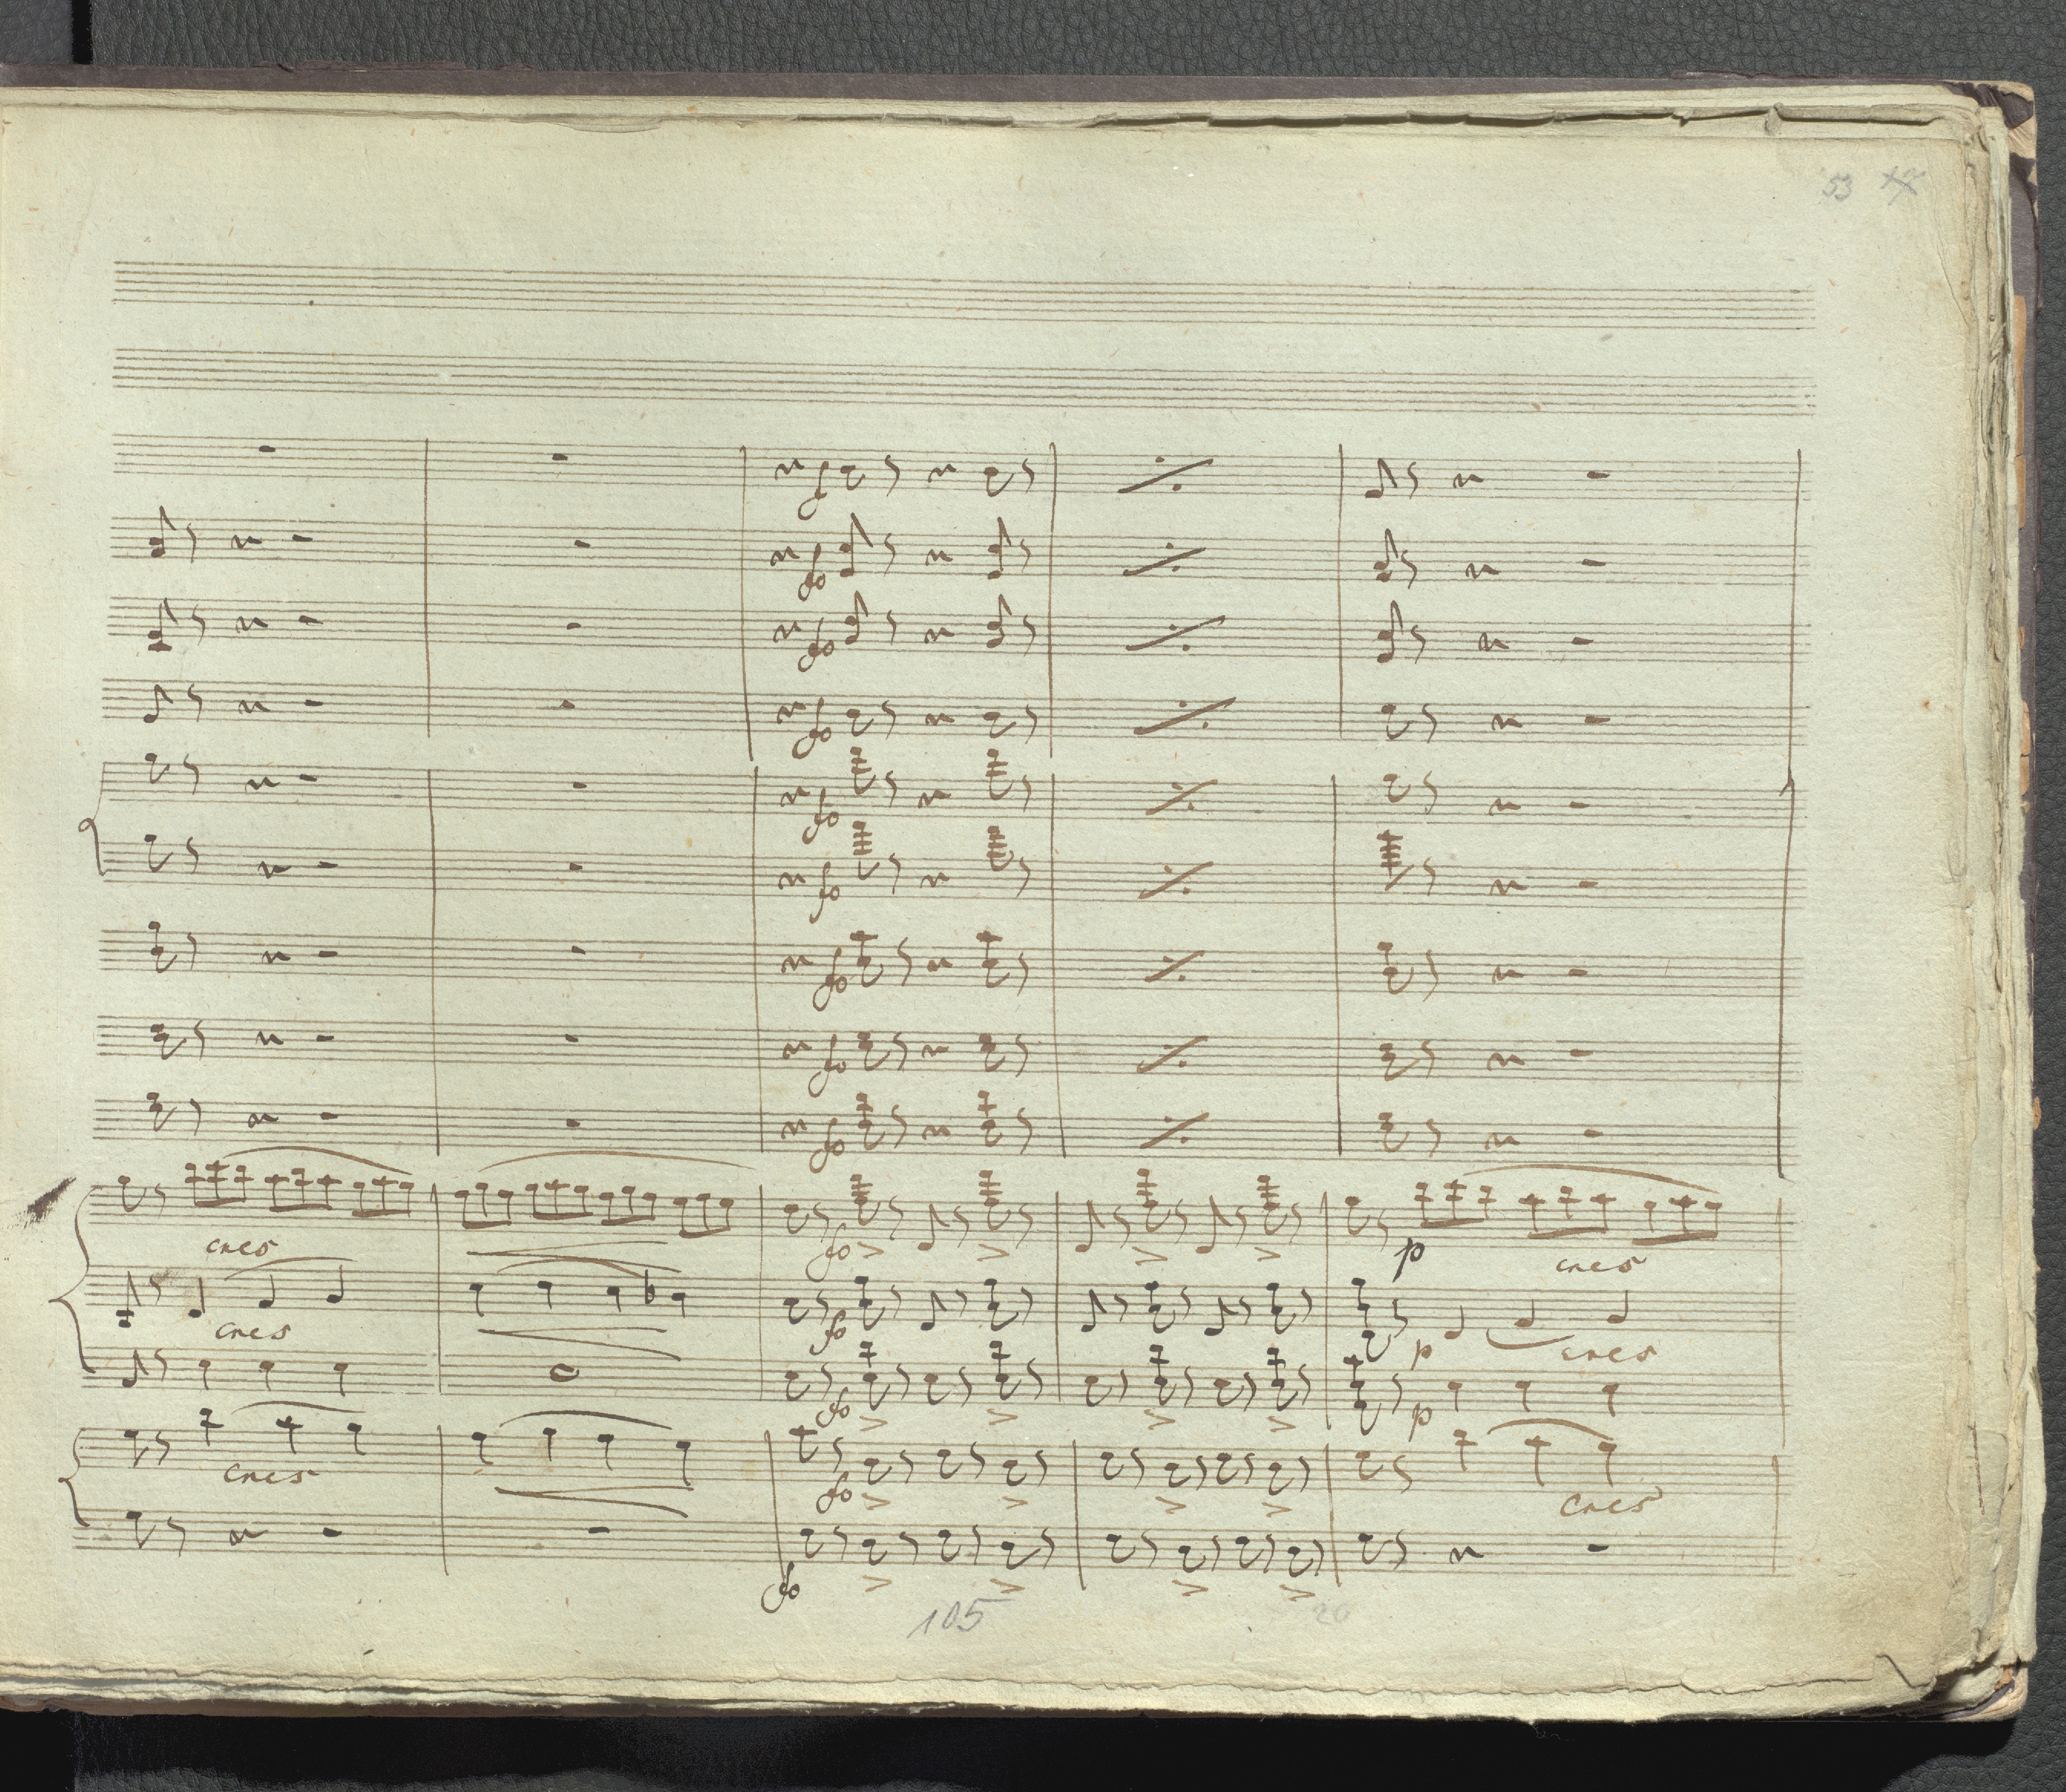 53
f
fo
fo
fo
fo
fo
fo
fo
fo
cres
fo
p
cres
cres
fo
p
cres
fo
p
cres
fo
cres
fo
105
20